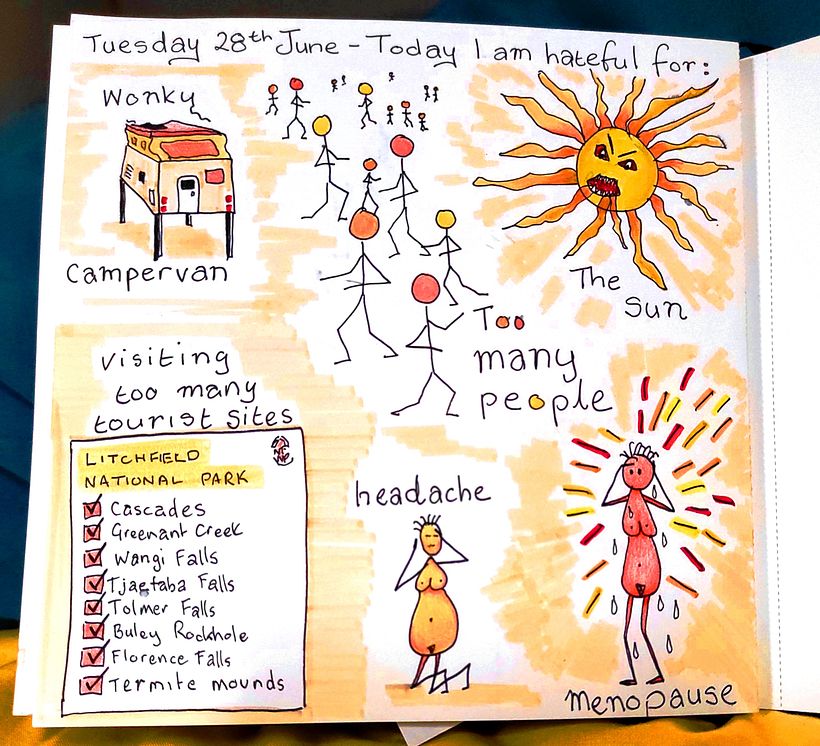 Tuesday 28th June - Today I am hateful for:
Wonky
campervan
The
sun
Too
many
people
visiting
too many
tourist sites
LITCHFIELD
NATIONAL PARK
Cascades
Greenant Creek
Wangi Falls
Tjaetaba Falls
Tolmer Falls
Buley Rockhole
Florence Falls
Termite mounds
headache
menopause